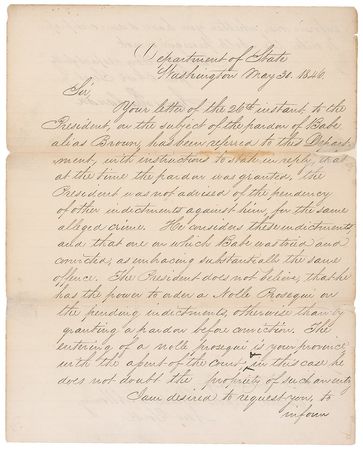 Department of State
Washington May 30. 1846.
Sir,
Your letter of the 26th instant, to the
President, on the subject of the pardon of Babe
alias Brown, has been referred to this Depart-
ment, with instructions to state in reply, that
at the time the pardon was granted, the
President was not advised of the pendency
of other indictments against him, for the same
alleged crime. He considers these indictments
and that one on which Babe was tried and
convicted, as embracing substantially the same
offence. The President does not believe, that he
has the power to order a Nolle Prosequi on
the pending indictments, otherwise than by
granting a pardon before conviction. The
entering of a nolle prosequi is your province
with the assent of the court, in this case he
does not doubt the propriety of such an entry
I am desired to request you, to
inform